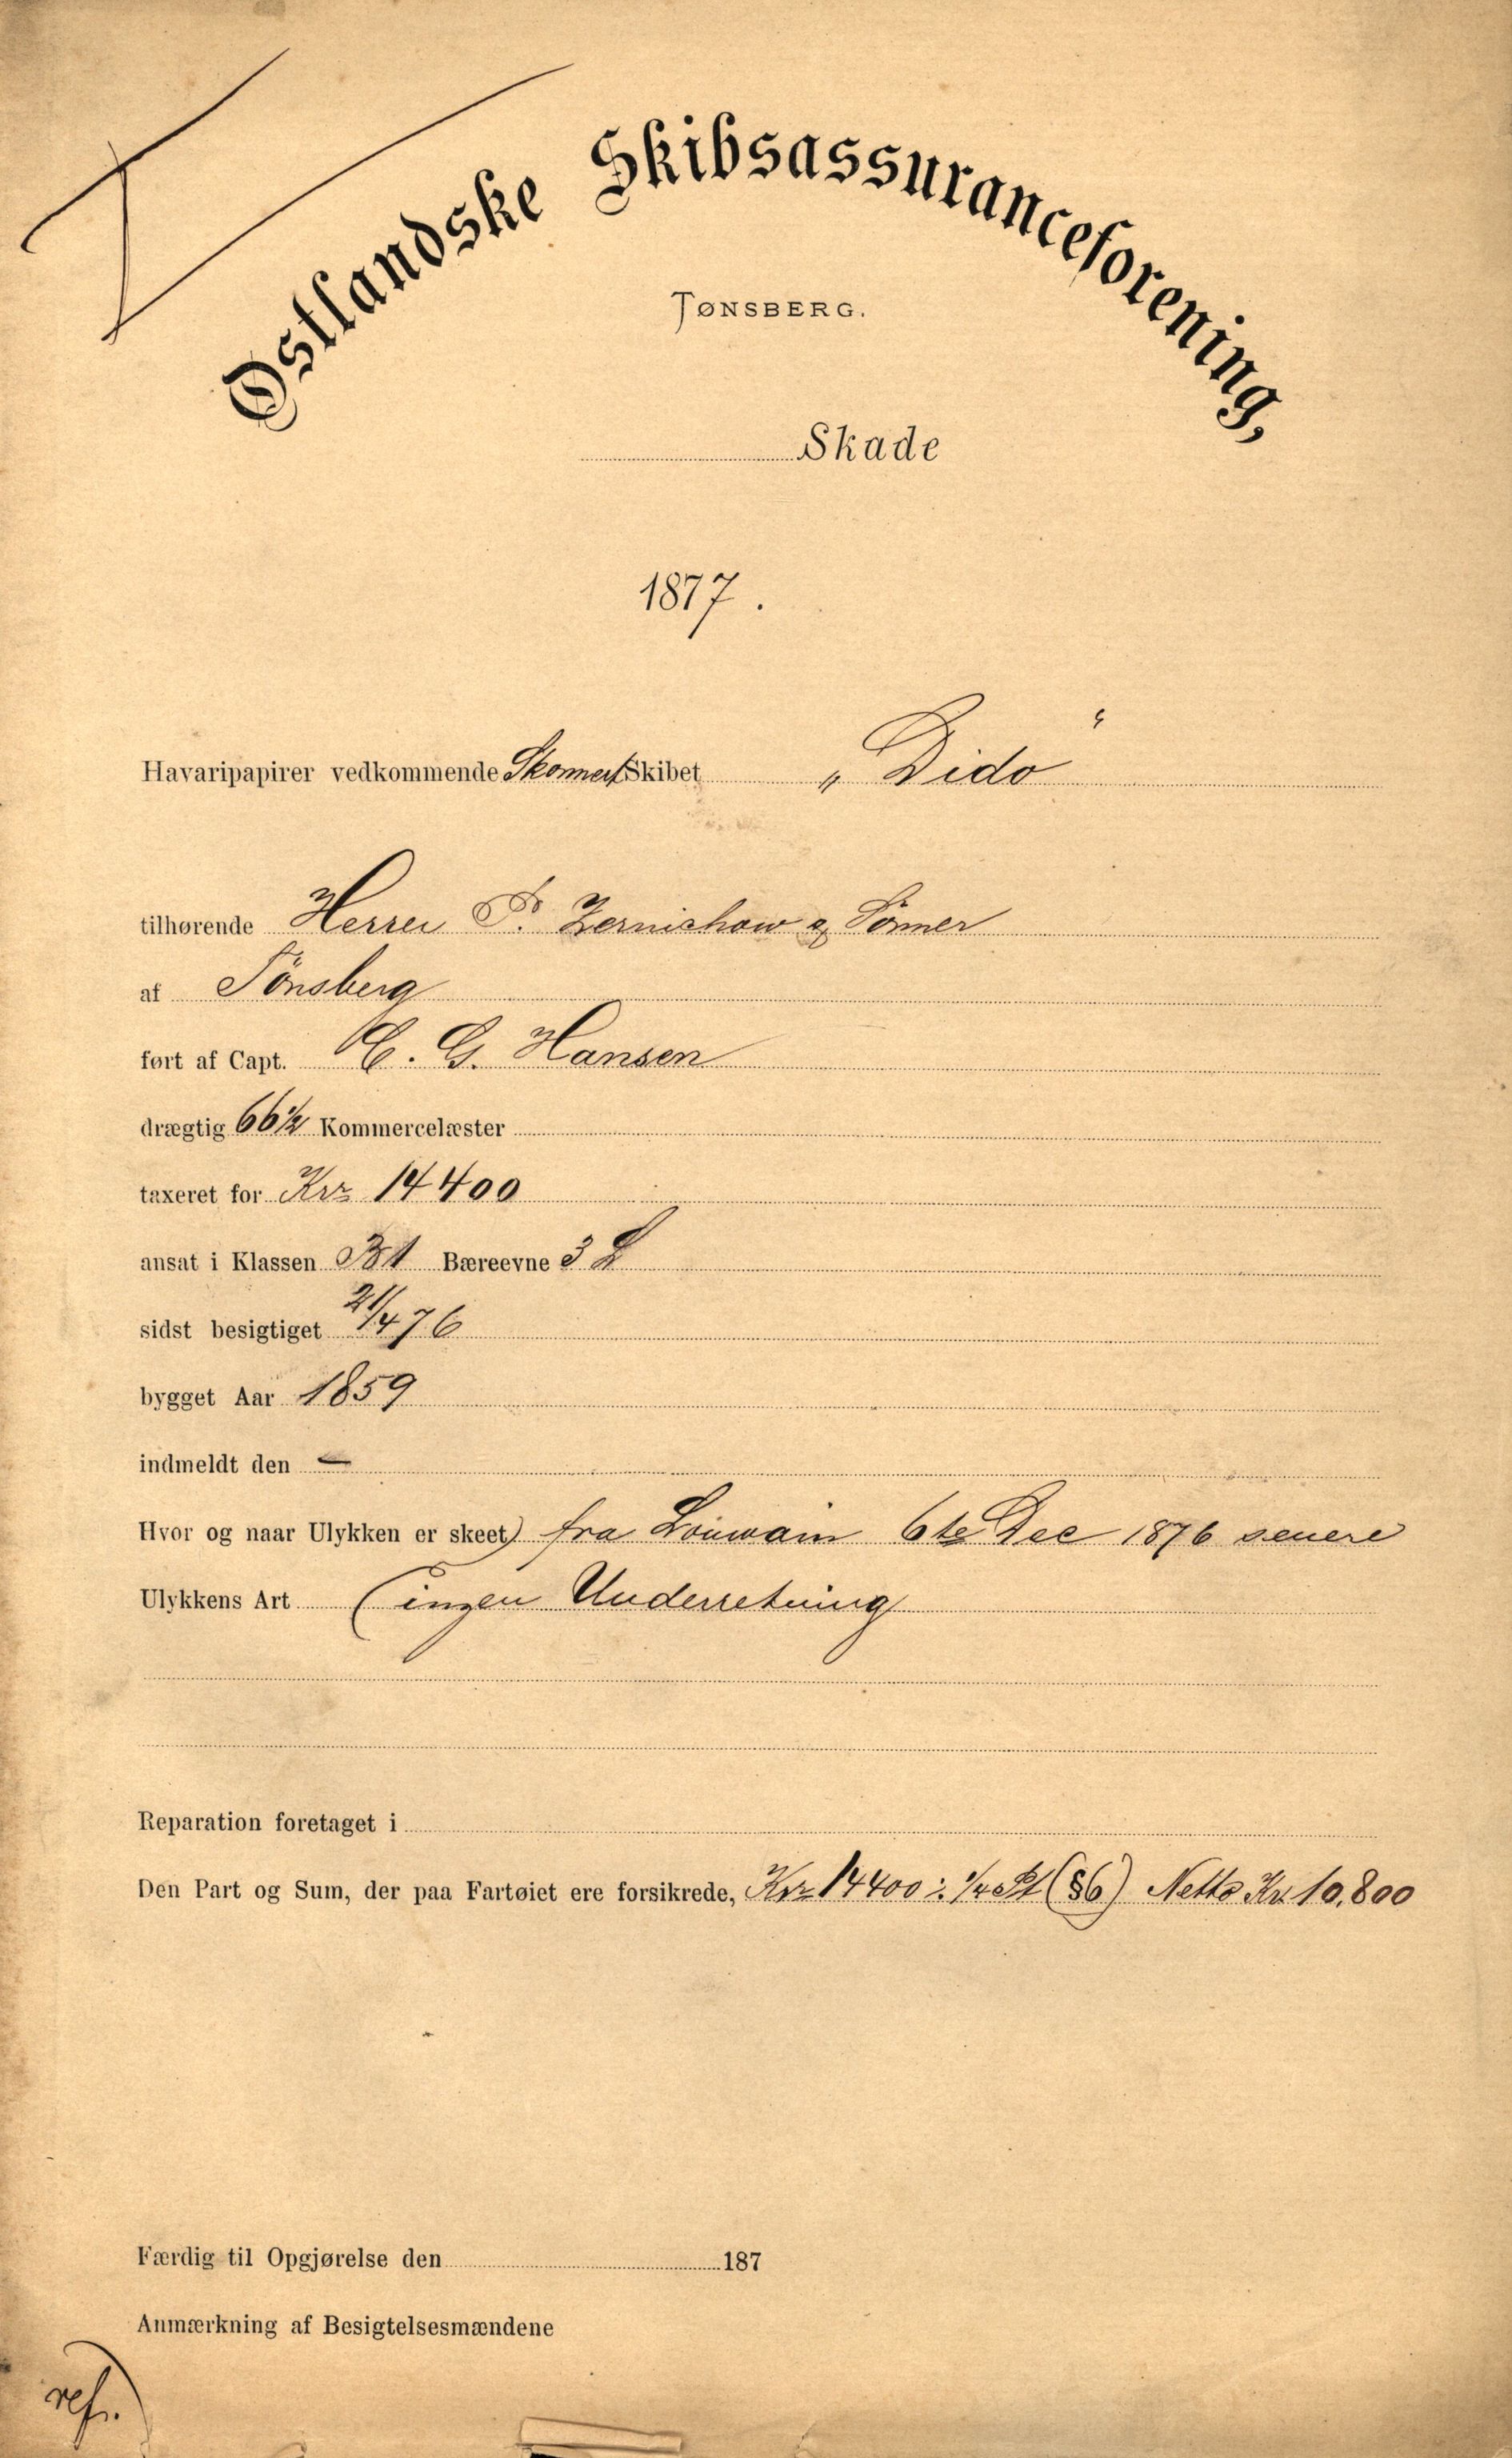 Østlandske Skibsassuranceforening,
TØNSBERG.
Skade
1877.
Havaripapirer vedkommende Skonnert Skibet „Dido“
tilhørende Herrer P. Zernichow & Sønner
af Tönsberg
ført af Capt. C. G. Hansen
drægtig 66½ Kommercelæster
taxeret for Kr 14400
ansat i Klassen B1 Bæreevne 3 L
sidst besigtiget 21/4 76
bygget Aar 1859
indmeldt den —
Hvor og naar Ulykken er skeet) fra 6te Dec 1876 senere
Ulykkens Art (ingen Underretning
Reparation foretaget i
Den Part og Sum, der paa Fartøiet ere forsikrede, Kr 14400 ÷ ¼ Pt (§6) Netto Kr. 10,800
Færdig til Opgjørelse den 187
Anmærkning af Besigtelsesmændene
ref.)